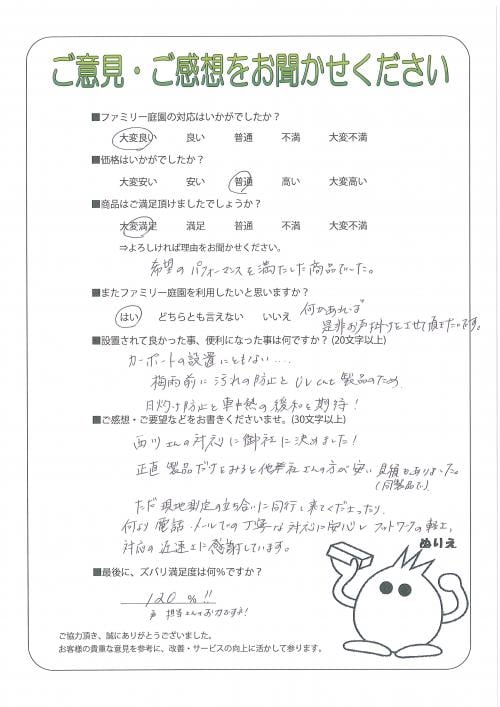 ご意見・ご感想をお聞かせください
■ファミリー庭園の対応はいかがでしたか？
大変良い 良い 普通 不満 大変不満
■価格はいかがでしたか？
大変安い 安い 普通 高い 大変高い
■商品はご満足頂けましたでしょうか？
大変満足 満足 普通 不満 大変不満
⇒よろしければ理由をお聞かせください。
希望のパフォーマンスを満たした商品でした。
■またファミリー庭園を利用したいと思いますか？
はい どちらとも言えない いいえ 何かあれば
是非お声掛けをさせて頂きたいです。
■設置されて良かった事、便利になった事は何ですか？(20文字以上)
カーポートの設置にともない....
梅雨前に汚れの防止とUV cut製品のため
日灼け防止と車中熱の緩和を期待！
■ご感想・ご要望などをお書きくださいませ。(30文字以上)
西川さんの対応に御社に決めました！
正直 製品だけをみると他社さんの方が安い見積もありました。
(同製品で)
ただ現地測定の立ち合いに同行し来てくださったり、
何より電話・メールでの丁寧な対応に安心しフットワークの軽さ、
対応の迅速さに感謝しています。
ぬりえ
■最後に、ズバリ満足度は何％ですか？
120 %!!
担当さんのお力ですネ！
ご協力頂き、誠にありがとうございました。
お客様の貴重な意見を参考に、改善・サービスの向上に活かして参ります。